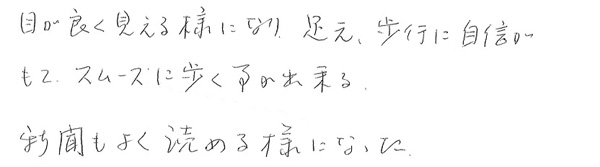 目が良く見える様になり、足元、歩行に自信が
もて、スムーズに歩く事が出来る。
新聞もよく読める様になった。